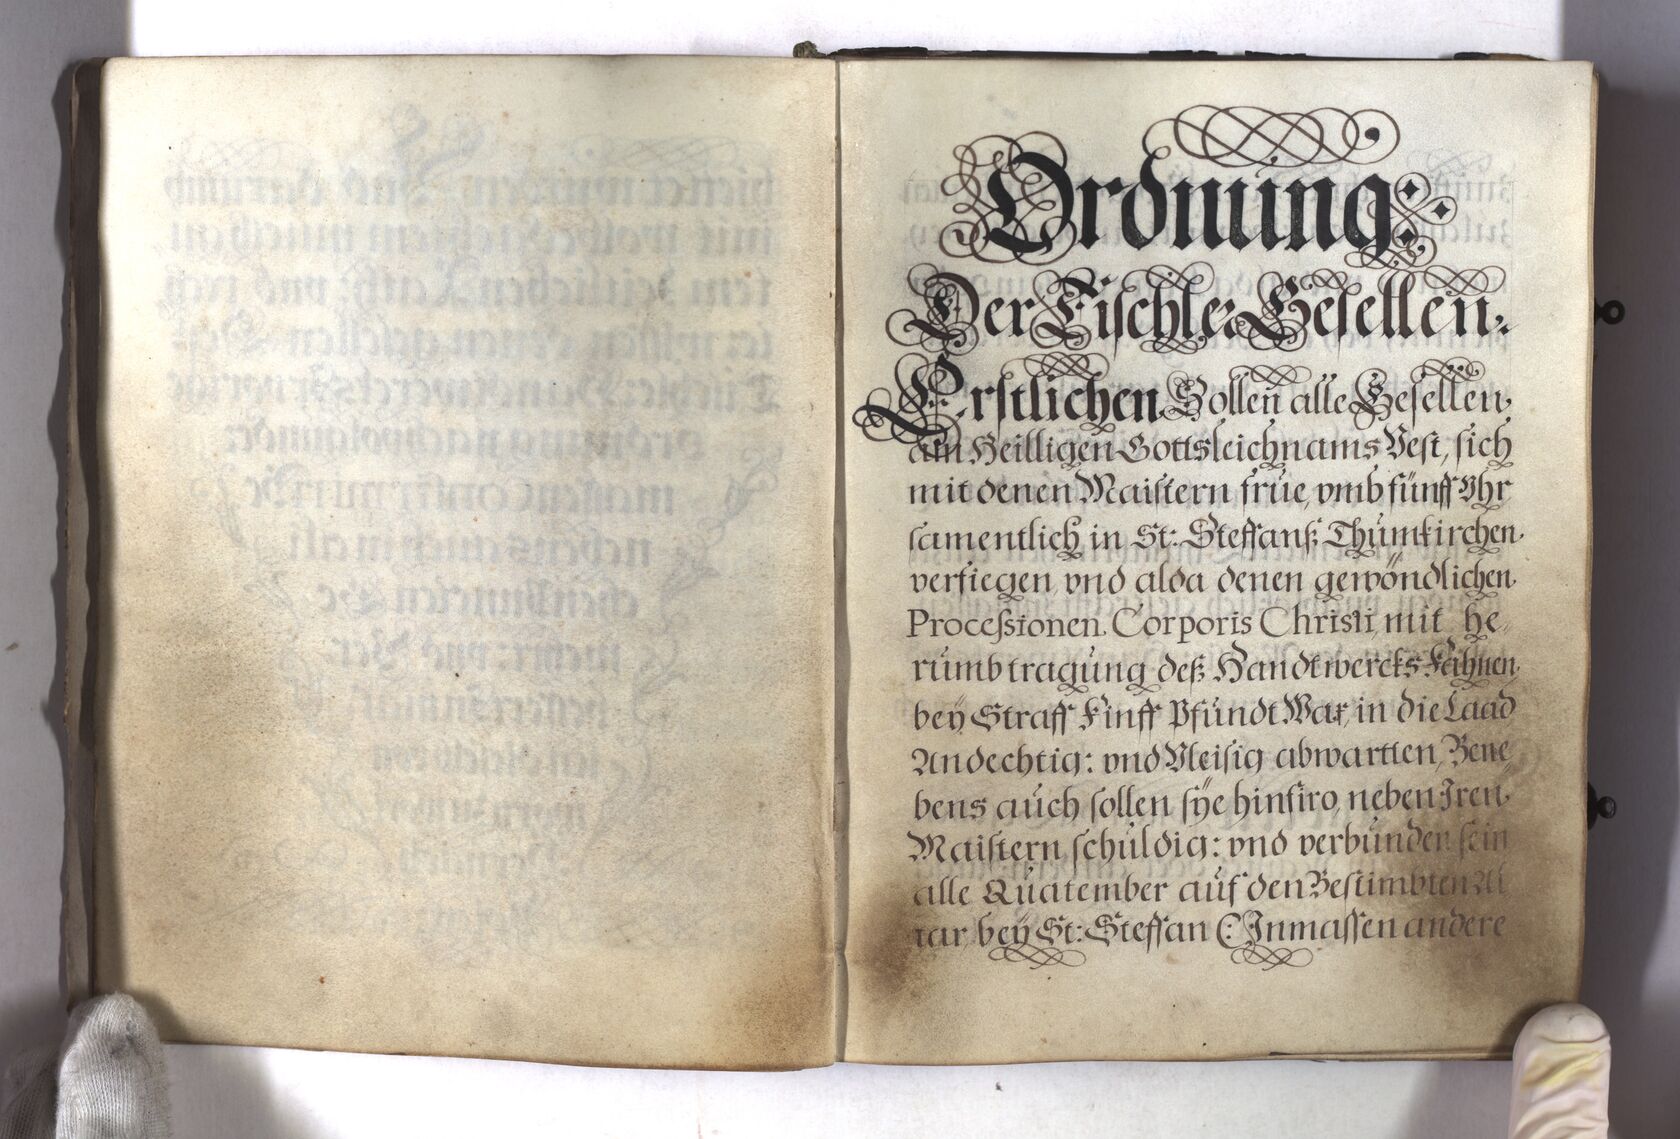 Ordnung:
Der Tischler Gesellen.
Erstlichen Sollen alle Gesellen,
am Heilligen Gottsleichnams Vest, sich
mit denen Maistern frue, vmb fünff Vhr
samentlich in St: Steffanß Thumkirchen
verfiegen, vnd alda denen gewöndlichen
Processionen Corporis Christi, mit he-
rumb tragung deß Handtwercks Fahnen
bey Straff Finff Pfundt Wax, in die Laad
Andechtig: vnd Vleisig abwartten, Bene-
bens auch sollen sÿe hinfiro, neben Iren
Maistern schuldig: vnd verbunden sein
alle Quatember auf den Bestimbten Al
tar, bey St: Steffan (: Inmassen andere